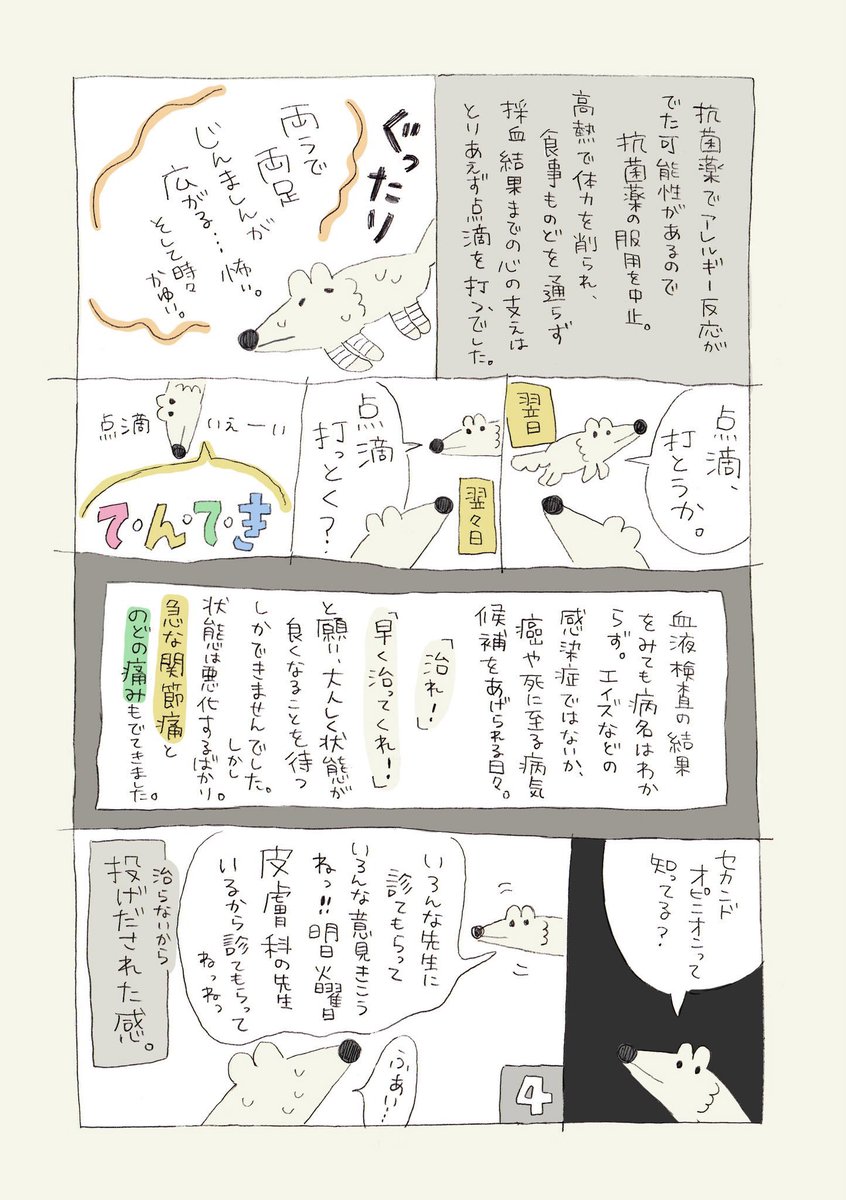 抗菌薬でアレルギー反応が
でた可能性があるので
抗菌薬の服用を中止。
高熱で体力を削られ、
食事ものどを通らず
採血結果までの心の支えは
とりあえず点滴を打つ、でした。
ぐったり
両うで
両足
じんましんが
広がる…怖い。
そして時々
かゆい。
翌日
点滴、
打とうか。
翌々日
点滴
打っとく？
点滴
いえーい
て・ん・て・き
血液検査の結果
をみても病名はわか
らず。エイズなどの
感染症ではないか、
癌や死に至る病気
候補をあげられる日々。
「治れ！」
「早く治ってくれ！」
と願い、大人しく状態が
良くなることを待つ
しかできませんでした。
しかし
状態は悪化するばかり。
急な関節痛と
のどの痛みもでてきました。
セカンド
オピニオンって
知ってる？
いろんな先生に
診てもらって
いろんな意見きこう
ねっ!!明日火曜日
皮膚科の先生
いるから診てもらって
ねっねっ
ふぁい…
治らないから
投げだされた感。
4